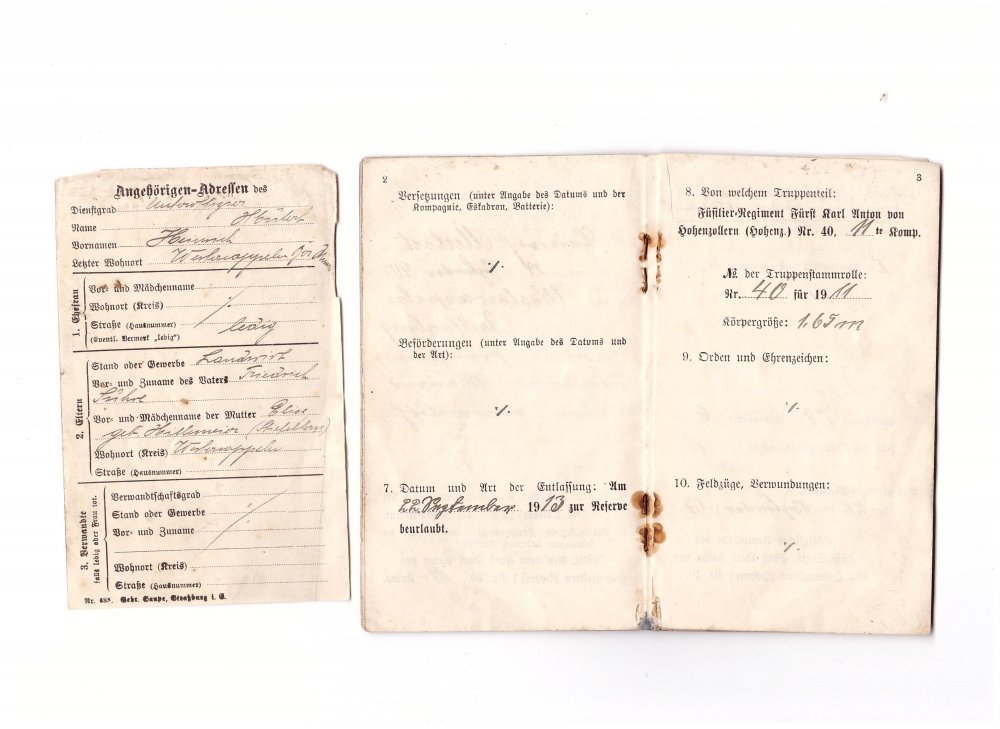 Angehörigen-Adressen des
Dienstgrad
Name
Vornamen Heinrich
Letzter Wohnort Westercappeln
1. Ehefrau
Vor- und Mädchenname
Wohnort (Kreis)
Straße (Hausnummer)
(Eventl. Vermerk „ledig") ledig
2. Eltern
Stand oder Gewerbe Landwirt
Vor- und Zuname des Vaters Friedrich
Vor- und Mädchenname der Mutter Elise
geb.
Wohnort (Kreis) Westercappeln
Straße (Hausnummer)
3. Verwandte
falls ledig oder Frau tot.
Verwandtschaftsgrad
Stand oder Gewerbe
Vor- und Zuname
Wohnort (Kreis)
Straße (Hausnummer)
Nr. 68a. Gebr. Haupe, Straßburg i. E.
2
Versetzungen (unter Angabe des Datums und der
Kompagnie, Eskadron, Batterie):
·/.
Beförderungen (unter Angabe des Datums und
der Art):
·/.
7. Datum und Art der Entlassung: Am
22. September 1913 zur Reserve
beurlaubt.
3
8. Von welchem Truppenteil:
Füsilier-Regiment Fürst Karl Anton von
Hohenzollern (Hohenz.) Nr. 40, 11 te Komp.
№ der Truppenstammrolle:
Nr. 40 für 1911
Körpergröße: 1,65 m
9. Orden und Ehrenzeichen:
·/.
10. Feldzüge, Verwundungen:
·/.